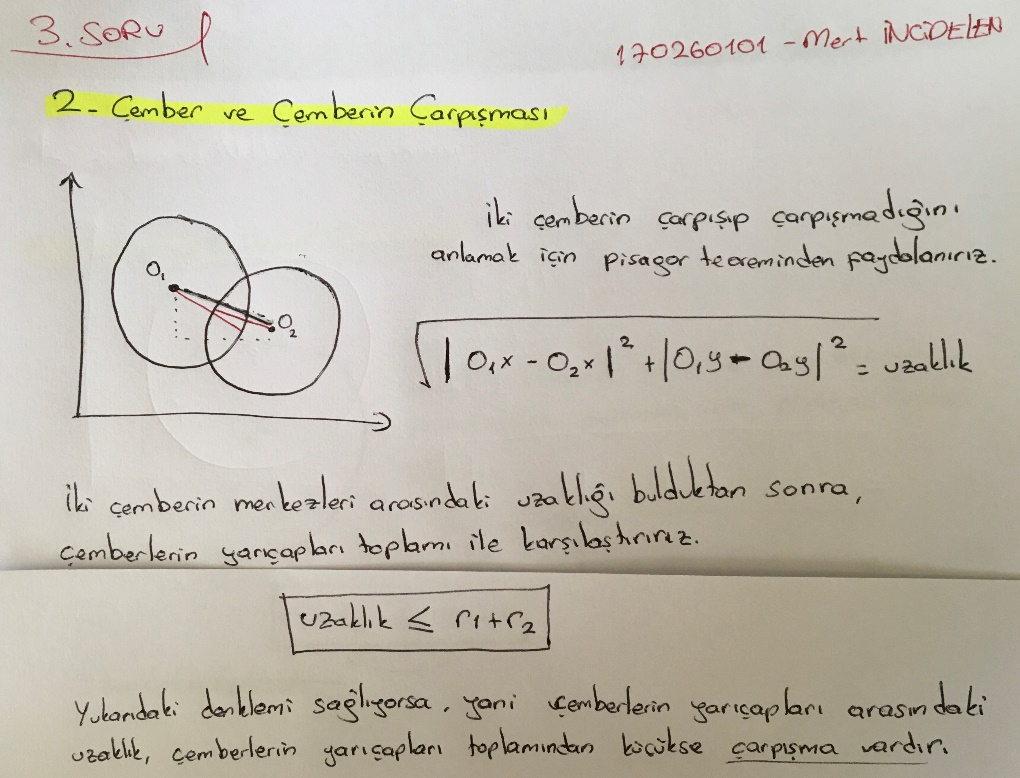 3. SORU
170260101 - Mert İNCİDELEN
2- Çember ve Çemberin Çarpışması
İki çemberin çarpışıp çarpışmadığını
anlamak için pisagor teoreminden faydalanırız.
O₁
O₂
√|O₁x - O₂x|² + |O₁y - O₂y|² = uzaklık
İki çemberin merkezleri arasındaki uzaklığı bulduktan sonra,
çemberlerin yarıçapları toplamı ile karşılaştırırız.
uzaklık ≤ r1+r2
Yukarıdaki denklemi sağlıyorsa, yani çemberlerin yarıçapları arasındaki
uzaklık, çemberlerin yarıçapları toplamından küçükse çarpışma vardır.